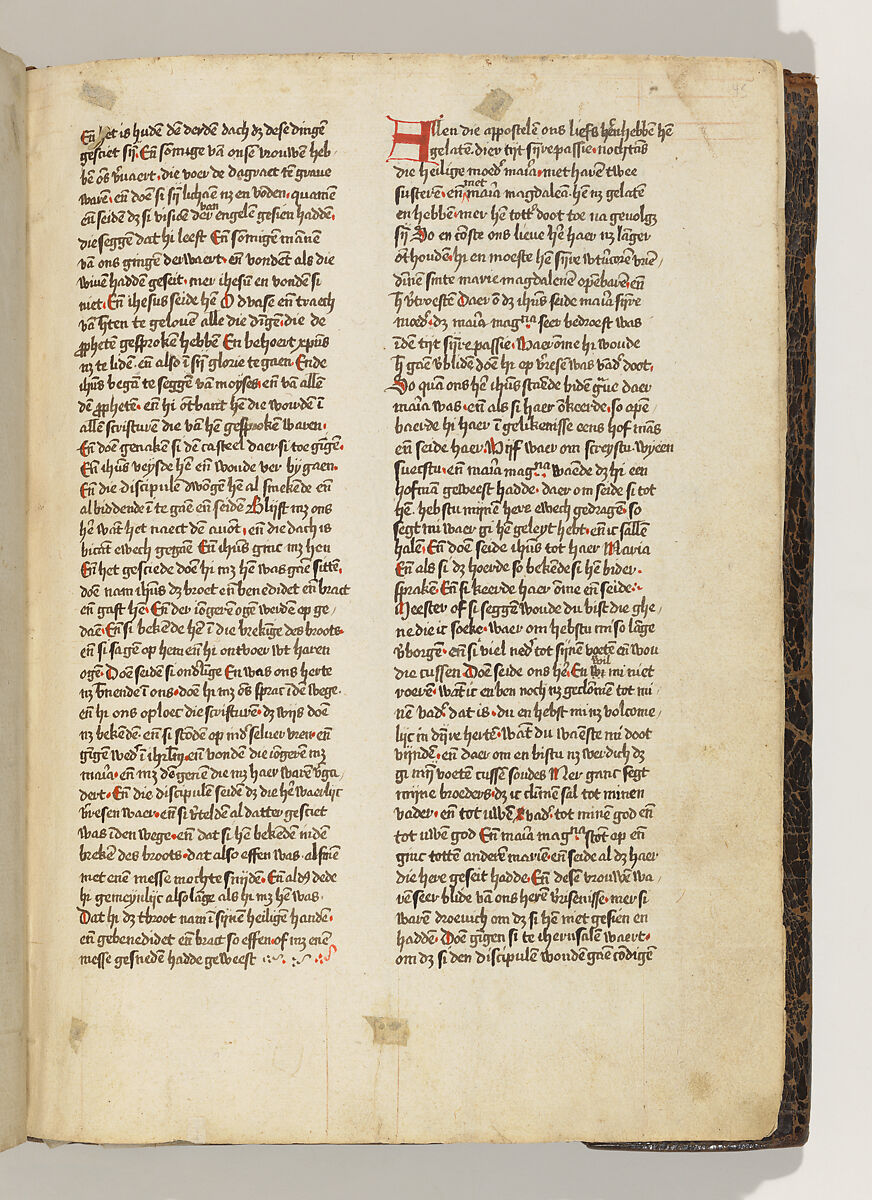 En̄ het is hudē dē derdē dach dʒ dese dingē
gesciet sÿ̄. En̄ sōmige vā onsē vrouwē heb-
bē ōs v̄vaert, die voer de dagraet tē grave
warē, en̄ doē si sÿ̄ lichaē nʒ en vōdē, quamē
en̄ seidē dʒ si visiōē der van engelē gesien haddē,
die seggē dat hi leeft En̄ sōmigē mānē
vā ons gingē derwaert, en̄ vondēt als die
wivē haddē geseit, mer ihesū en vondē si
niet, En̄ ihesus seide hē O dwasē en̄ traech
vā h̄tē te gelovē alle die dīgē, die de
prophetē gesprokē hebbē En behoert xpūs
nʒ te lidē, en̄ also ī sÿ̄ glorie te gaen, Ende
ihūs begā te seggē vā moyses, en̄ vā allē
dē prophetē, en̄ hi ōtbant hē die wordē ī
allē scrifturē die vā hē gesprokē warē,
En̄ doē genakē si dē casteel daer si toe gīgē,
En̄ ihūs veysde hē en̄ woude ver by gaē,
En̄ die discipulē dwōgē hē al smekēde en̄
al biddende ī te gaē en̄ seidē Blijft mʒ ons
he᷒ wāt het naect dē avōt, en̄ die dach is
bicāt ewech gegaē En̄ ihūs gīnc mʒ hen
En̄ het gesciede doē hi mʒ hē was gāē sittē,
doē nam ihūs dʒ broet en̄ benedidet en̄ bract
en̄ gaft hē, En̄ der iōgerē ogē werdē op ge-
daē, En̄ si bekēde hē ī die brekīge des broots,
en̄ si sagē op hem en̄ hi ontvoer wt harē
ogē, Doē seidē si ondʼlīge En was ons herte
nʒ b̄nende ī ons, doē hi mʒ ōs sprac īdē wege,
en̄ hi ons oploec die scrifturē, dʒ wijs doē
nʒ bekendē, en̄ si stōdē op indʼ selver vren, en̄
gīgē wedʼ ī ihrlm̄, en̄ vondē die iōgerē mʒ
maria, en̄ mʒ dē genē die mʒ haer warē v̄ga-
dert, En̄ die discipulē seidē dʒ die he᷒ waerlijc
v̄resen waer, en̄ si v̄teldē al datter gesciet
was īden wege, en̄ dat si hē bekēdē inden
brekē des broots, dat also effen was, alsmē
met enē messe mochte snijdē, En̄ aldʒ dede
hi gemeynlijc also lāge als hi mʒ hē was,
Dat hi dʒ tbroot nam ī sijnē heiligē handē,
en̄ gebenedidet en̄ bract so effen, of mʒ enē
messe gesnedē hadde geweest
Allen die appostelē ons liefs he᷒n hebbē hē
gelatē, dier tijt sijre passie, nochtās
die heilige moedʼ maria, met harē twee
susterē, en̄ met maria magdaleā, hē nʒ gelatē
en hebbē, mer hē tottʼ doot toe na gevolgʒ
sÿ̄ So en cōste ons lieve he᷒ haer nʒ lāger
ōthoudē, hi en moeste hē sijre wtvʼcorē vriē-
dinē sinte marie magdalenē opēbarē, en̄
h᷒ v̄troestē Daer ō dʒ ihūs seide maria sijre
moedʼ, dʒ maria magna seer bedroeft was
īdē tijt sijre passie, Waer ōme hi woude
h᷒ gāē v̄blidē doē hi op v̄resē was vādʼ doot,
So quā ons he᷒ ihūs staēde bidē gʼve daer
maria was, en̄ als si haer ōkeerde, so opē-
baerde hi haer ī gelikenisse eens hof māns
en̄ seide haer, Wijf waer om screystu, wyē en
suecstu, en̄ maria magna waēde dʒ hi een
hofmā geweest hadde, daer om seide si tot
hē, hebstu mijnē here ewech gedragē, so
segt mi waer gi hē geleyt hebt, en̄ ic sallē
halē, En̄ doē seide ihūs tot haer Maria
En̄ als si dʒ hoerde so bekēde si hē bider,
sprakē, En̄ si keerde haer ōme en̄ seide,
Meester of si seggē woude du bist die ghe-
ne die ic soeke, waer om hebstu mi so lāge
v̄borgē, en̄ si viel nedʼ tot sijnē voetē en̄ wou
die cussen, Doē seide ons he᷒, En wil mi niet
roerē, wāt ic en ben noch nʒ geclōmē tot mi-
nē vadʼ, dat is, du en hebst mi nʒ volcome-
lijc in dijre hertē, wāt du waenste mi doot
vijndē, en̄ daer om en bistu nʒ werdich dʒ
gi mÿ̄ voetē cussē soudes Mer ganc segt
mijne broeders, dʒ ic clīmē sal tot minen
vader, en̄ tot uwē vadʼ, tot minē god en̄
tot uwē god En̄ maria magna stōt op en̄
ginc tottē anderē mariē, en̄ seide al dʒ haer
die here geseit hadde, En̄ desē vrouwē wa-
rē seer blide vā ons herē v̄risenisse, mer si
warē droevich om dʒ si hē niet gesien en
haddē, Doē gīgē si te iherusalē waert,
om dʒ si den discipulē woudē gāē cōdigē